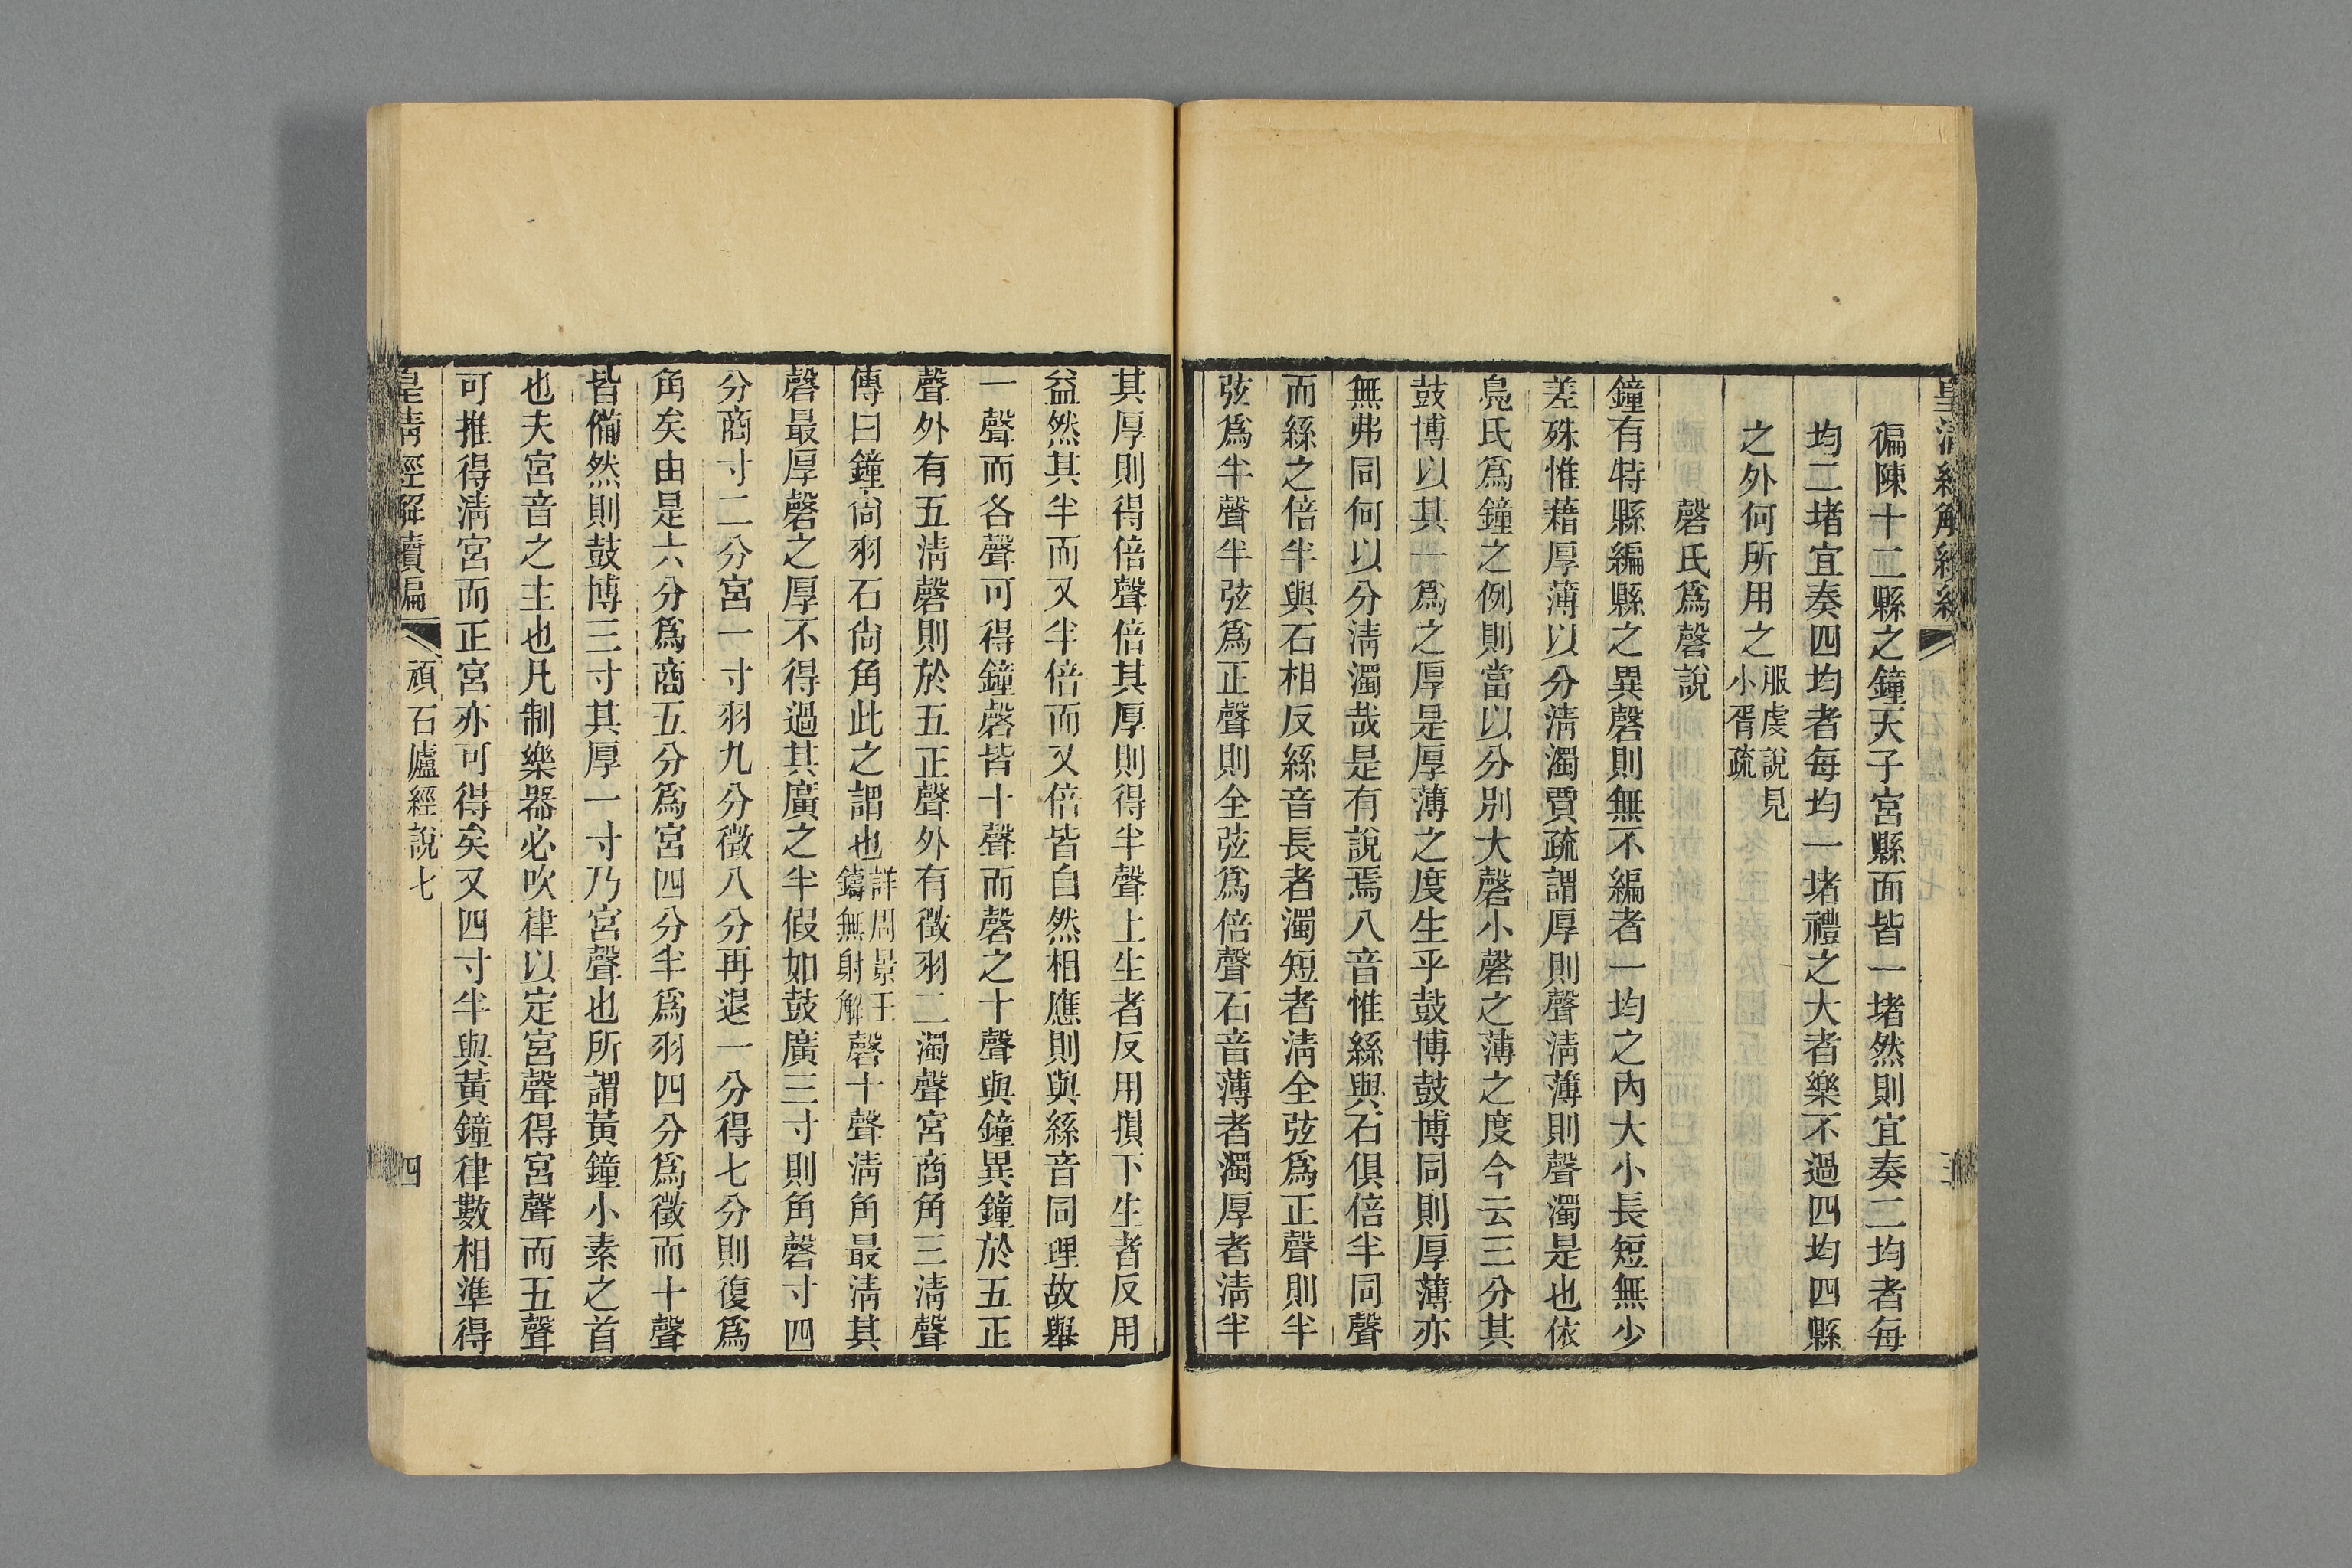 徧陳十二縣之鐘天子宮縣面皆一堵然則宜奏二均者每
均二堵宜奏四均者每均一堵禮之大者樂不過四均四縣
之外何所用之服虔說見小胥疏
磬氏爲磬說
鐘有特縣編縣之異磬則無不編者一均之內大小長短無少
差殊惟藉厚薄以分淸濁賈疏謂厚則聲淸薄則聲濁是也依
鳧氏爲鐘之例則當以分別大磬小磬之薄之度今云三分其
鼓博以其一爲之厚是厚薄之度生乎鼓博鼓博同則厚薄亦
無弗同何以分淸濁哉是有說焉八音惟絲與石俱倍半同聲
而絲之倍半與石相反絲音長者濁短者淸全弦爲正聲則半
弦爲半聲半弦爲正聲則全弦爲倍聲石音薄者濁厚者淸半
其厚則得倍聲倍其厚則得半聲上生者反用損下生者反用
益然其半而又半倍而又倍皆自然相應則與絲音同理故舉
一聲而各聲可得鐘磬皆十聲而磬之十聲與鐘異鐘於五正
聲外有五淸磬則於五正聲外有徵羽二濁聲宮商角三淸聲
傳曰鐘尙羽石尙角此之謂也詳周景王鑄無射解磬十聲淸角最淸其
磬最厚磬之厚不得過其廣之半假如鼓廣三寸則角磬寸四
分商寸二分宮一寸羽九分徵八分再退一分得七分則復爲
角矣由是六分爲商五分爲宮四分半爲羽四分爲徵而十聲
皆備然則鼓博三寸其厚一寸乃宮聲也所謂黃鐘小素之首
也夫宮音之主也凡制樂器必吹律以定宮聲得宮聲而五聲
可推得淸宮而正宮亦可得矣又四寸半與黃鐘律數相準得
皇淸經解續編 頑石廬經說七 四